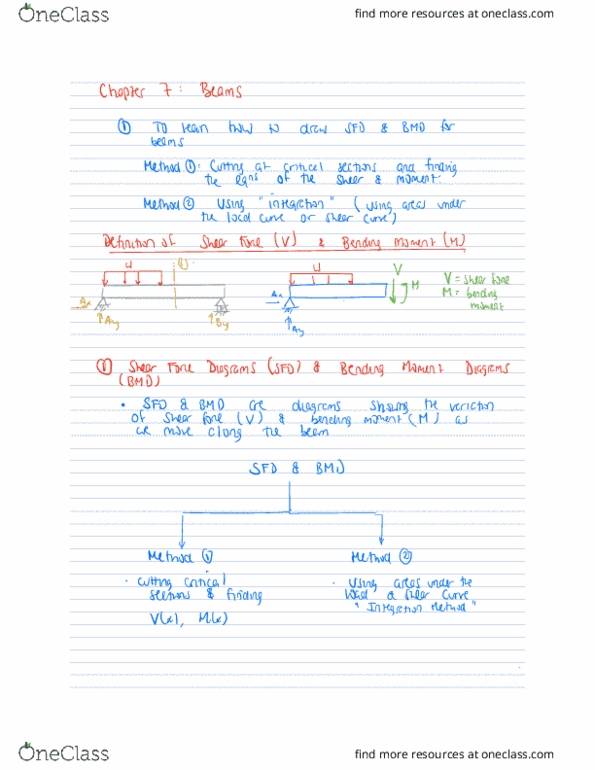 OneClass
find more resources at oneclass.com
Chapter 7: Beams
① To learn how to draw SFD & BMD for
beams
Method ①: Cutting at critical sections and finding
the eqns of the shear & moment.
Method ② Using "integration" (using areas under
the load curve or shear curve)
Definition of Shear Force (V) & Bending Moment (M)
W
①
Ax
Ay
By
W
Ax
Ay
V
M
V = shear force
M = bending
moment
① Shear Force Diagrams (SFD) & Bending Moment Diagrams
(BMD)
• SFD & BMD are diagrams showing the variation
of shear force (V) & bending moment (M) as
we move along the beam
SFD & BMD
Method ①
Method ②
· Cutting critical
sections & finding
V(x), M(x)
· Using areas under the
load & shear curve
"Integration Method"
OneClass
find more resources at oneclass.com